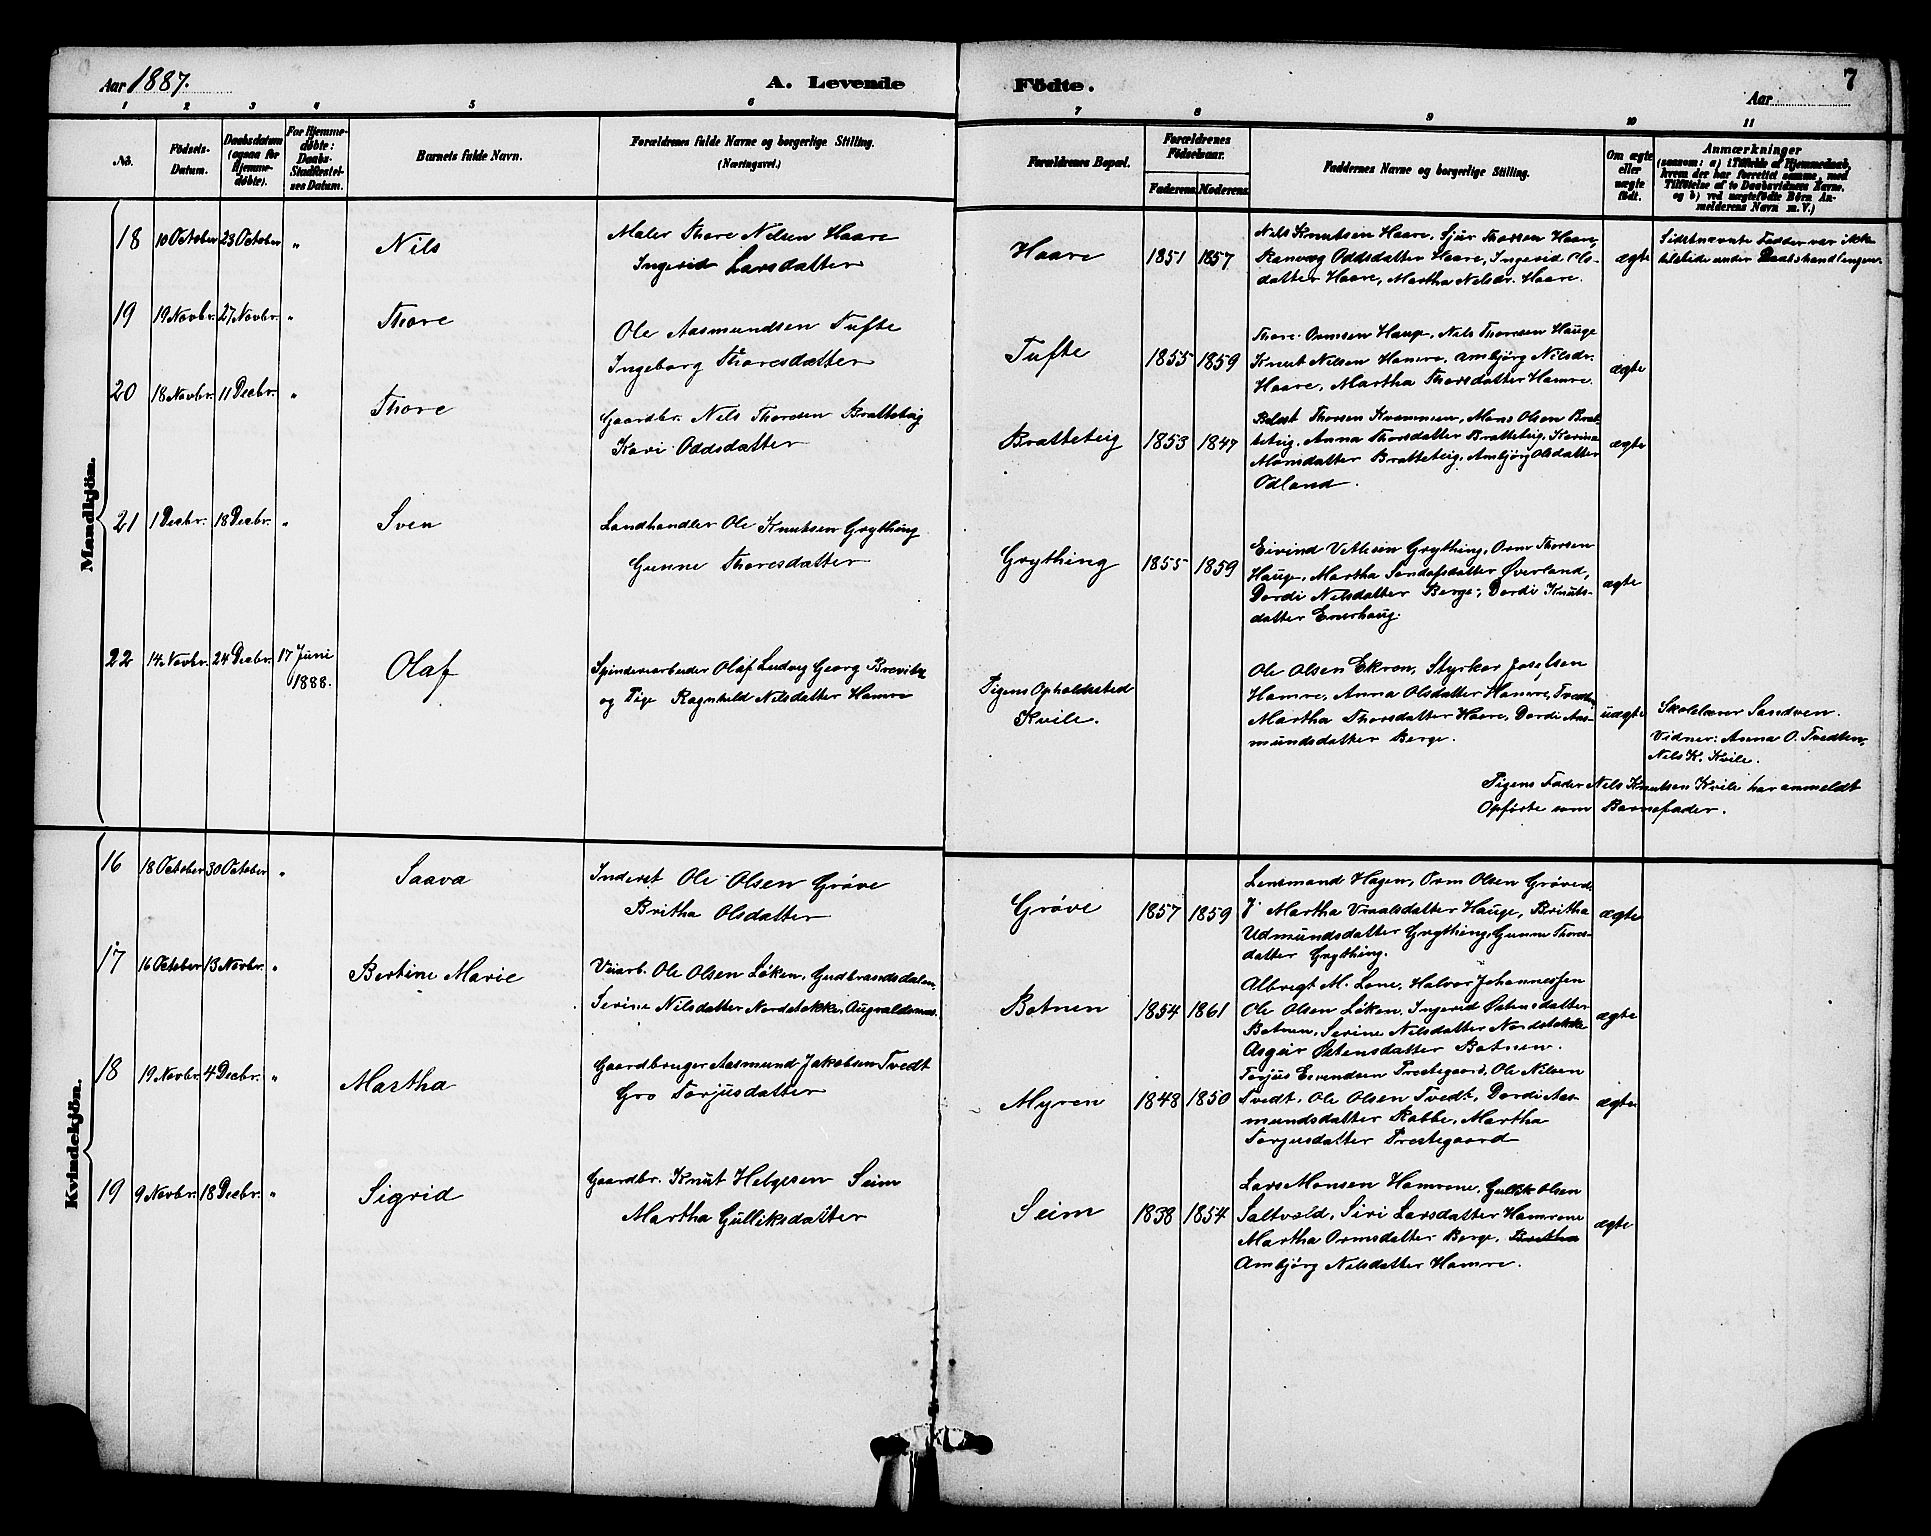 Aar 1887.
A. Levende Födte.
7
Aar
1 2 3 4 5 6 7 8 9 10 11
No.
Födsels-
Datum.
Daabsdatum
(ogsaa for
Hjemme-
döbte).
For Hjemme-
döbte:
Daabs-
Stadfæstel-
ses Datum.
Barnets fulde Navn.
Forældrenes fulde Navne og borgerlige Stilling.
(Næringsvei.)
Forældrenes Bopæl.
Forældrenes
Födselsaar.
Faderens. Moderens.
Faddernes Navne og borgerlige Stilling.
Om ægte
eller
uægte
födt.
Anmærkninger
(saasom: a) i Tilfælde af Hjemmedaab,
hvem der har forrettet samme, med
Tilföielse af to Daabsvidners Navne,
og b) ved uægtefödte Börn An-
melderens Navn m. V.)
Mandkjön.
18 10 October 23 October " Nils
Maler Thore Nilsen Haare
Ingerid Larsdatter
Haare 1851 1857
Nils Knutsen Haare, Sjur Thorsen Haare,
Ranveg Oddsdatter Haare, Ingerid Ols-
datter Haare, Martha Nilsdr. Haare.
ægte
Sidstnævnte Fadder var ikke
tilstede under Daabshandlingen.
19 19 Novbr. 27 Novbr. " Thore
Ole Aasmundsen Tufte
Ingeborg Thoresdatter
Tufte 1855 1859
Thore Ormsen Hauge, Nils Thoresen Hauge
Knut Nilsen Hamre, Ambjörg Nilsdr.
Haare, Martha Thorsdatter Hamre.
ægte
20 18 Novbr. 11 Decbr. " Thore
Gaardbr. Nils Thoresen Bratteteig
Kari Oddsdatter
Bratteteig 1853 1847
Thorsen Kvammen, Mons Olsen Brat-
teteig, Anna Thorsdatter Bratteteig, Karina
Monsdatter Bratteteig, Ambjörg Olsdatter
Odland.
ægte
21 1 Decbr. 18 Decbr. " Sven
Landhandler Ole Knutsen Grything
Gunne Thoresdatter
Grything 1855 1859
Eivind Vetlesen Grything, Orm Thorsen
Hauge, Martha Sondofsdatter Øverland,
Dordi Nilsdatter Berge, Dordi Knuts-
datter Enerhaug.
ægte
22 14 Novbr. 24 Decbr. 17 Juni
1888. Olaf
Spinderiarbeider Olaf Ludvig Georg
og Pige Ragnhild Nilsdatter Hamre
Pigens Opholdssted
Kvile.
Ole Olsen Ekren, Styrkor Josefsen
Hamre, Anna Olsdatter Hamre, Tvedten
Martha Thorsdatter Haare, Dordi Aas-
mundsdatter Berge.
uægte
Skolelærer Sandven.
Vidner: Anna O. Tvedten,
Nils K. Kvile.
Pigens Fader Nils Knutsen Kvile har anmeldt
Opförte som Barnefader.
Kvindekjön.
16 18 October 30 October " Saava
Inderst Ole Olsen Gröve
Britha Olsdatter
Gröve 1857 1859
Lensmand Hagen, Orm Olsen Gröve
Martha Vraalsdatter Hauge, Britha
Udmundsdatter Grything, Gunne Thores-
datter Grything.
ægte
17 16 October 13 Novbr. " Bertine Marie
Veiarb. Ole Olsen Löken, Gudbrandsdalen
Serine Nilsdatter Nordstokke, Augvaldsnes.
Botnen 1854 1861
Albregt M. Lone, Halvor Johannessen
Ole Olsen Löken, Ingerid Østensdatter
Botnen, Serine Nilsdatter Nordstokke
Asgeir Østensdatter Botnen.
ægte
18 19 Novbr. 4 Decbr. " Martha
Gaardbruger Aasmund Jakobsen Tvedt
Gro Torjusdatter
Myren 1848 1850
Torjus Eivendsen Prestegaard, Ole Nilsen
Tvedt, Ole Olsen Tvedt, Dordi Aas-
mundsdatter Rabbe, Martha
Torjusdatter Prestegaard
ægte
19 9 Novbr. 18 Decbr. " Sigrid
Gaardbr. Knut Helgesen Seim
Martha Gulliksdatter
Seim 1838 1854
Lars Monsen Hamrene, Gullik Olsen
Saltvold, Siri Larsdatter Hamrene
Martha Ormsdatter Berge, Britha
Ambjörg Nilsdatter Hamre.
ægte